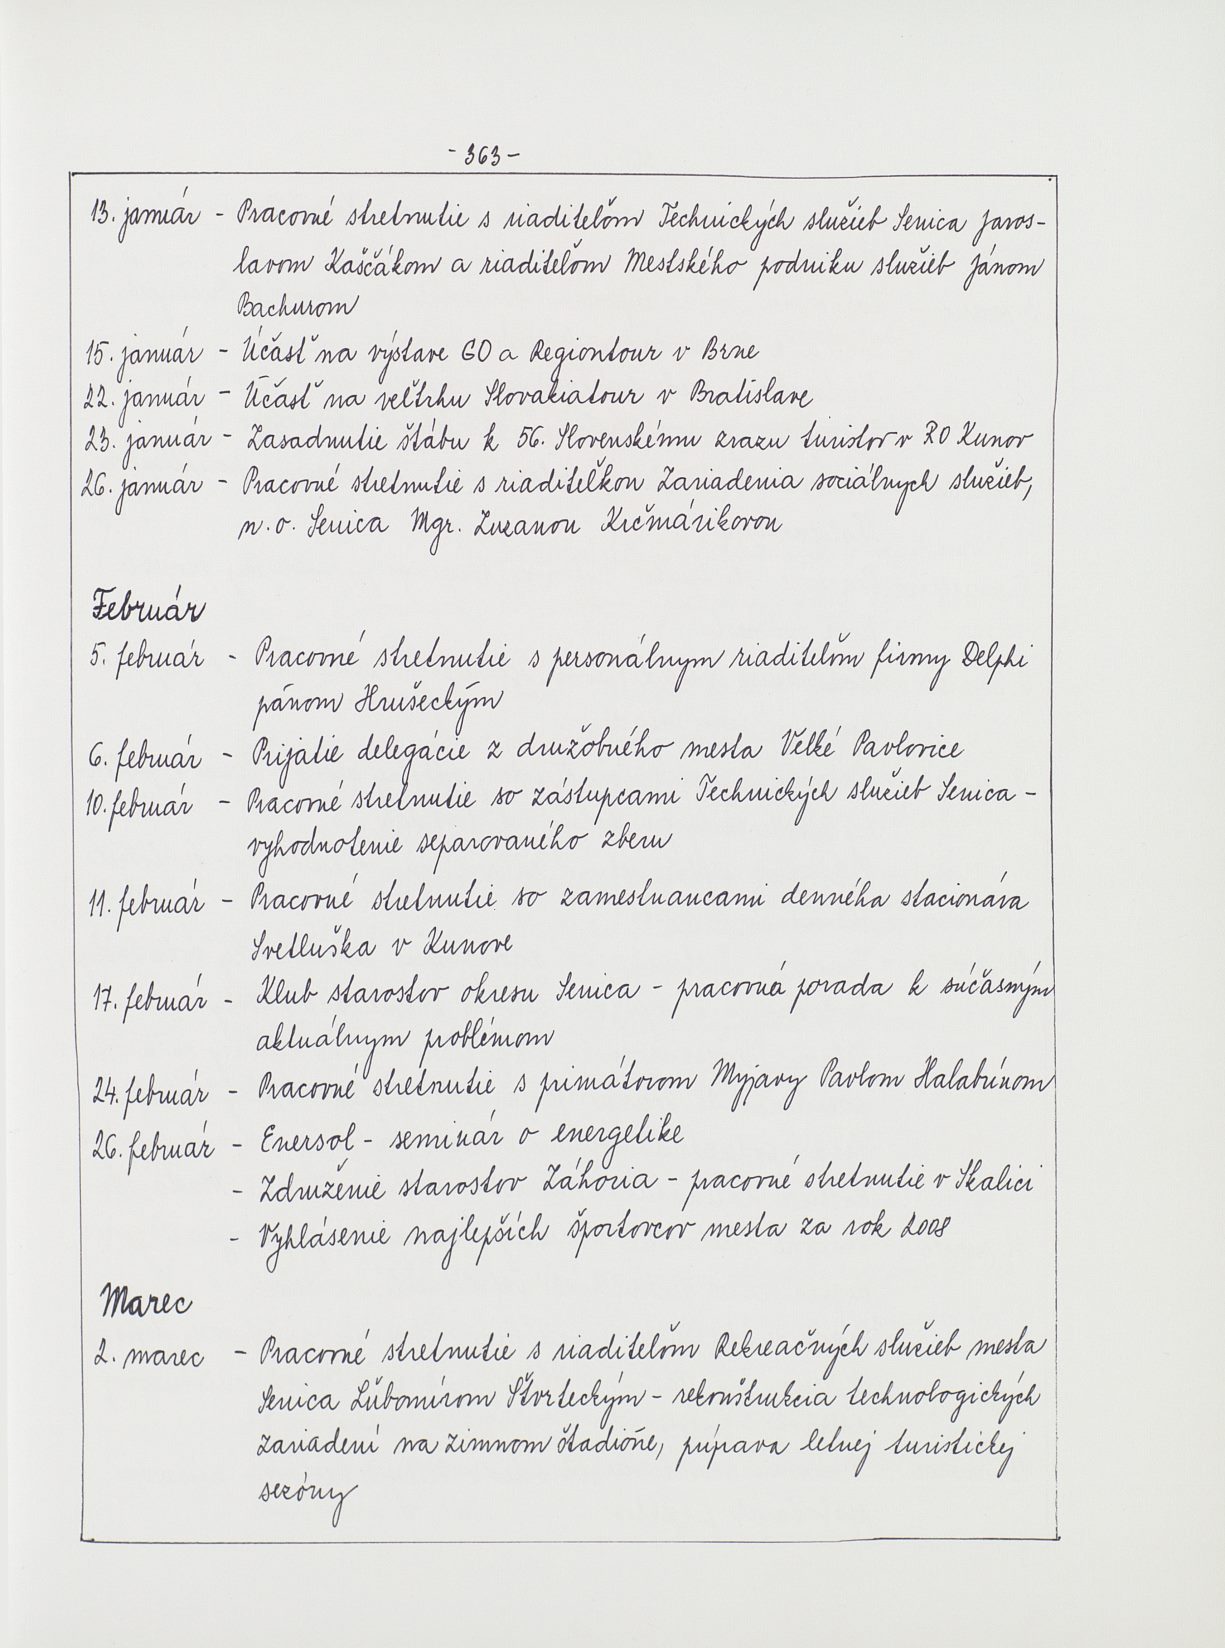 - 363 -
13. január - Pracovné stretnutie s riaditeľom Technických služieb Senica Jaros-
lavom Kaščákom a riaditeľom Mestského podniku služieb Jánom
Bachurom
15. január - Účasť na výstave GO a Regiontour v Brne
22. január - Účasť na veľtrhu Slovakiatour v Bratislave
23. január - Zasadnutie štábu k 56. Slovenskému zrazu turistov v RO Kunov
26. január - Pracovné stretnutie s riaditeľkou Zariadenia sociálnych služieb,
n. o. Senica Mgr. Zuzanou Krčmárikovou
Február
5. február - Pracovné stretnutie s personálnym riaditeľom firmy Delphi
pánom Hrušeckým
6. február - Prijatie delegácie z družobného mesta Veľké Pavlovice
10. február - Pracovné stretnutie so zástupcami Technických služieb Senica -
vyhodnotenie separovaného zberu
11. február - Pracovné stretnutie so zamestnancami denného stacionára
Svetluška v Kunove
17. február - Klub starostov okresu Senica - pracovná porada k súčasným
aktuálnym problémom
24. február - Pracovné stretnutie s primátorom Myjavy Pavlom Halabrínom
26. február - Enersol - seminár o energetike
- Združenie starostov Záhoria - pracovné stretnutie v Skalici
- Vyhlásenie najlepších športovcov mesta za rok 2008
Marec
2. marec - Pracovné stretnutie s riaditeľom Rekreačných služieb mesta
Senica Ľubomírom Štvrteckým - rekonštrukcia technologických
zariadení na zimnom štadióne, príprava letnej turistickej
sezóny